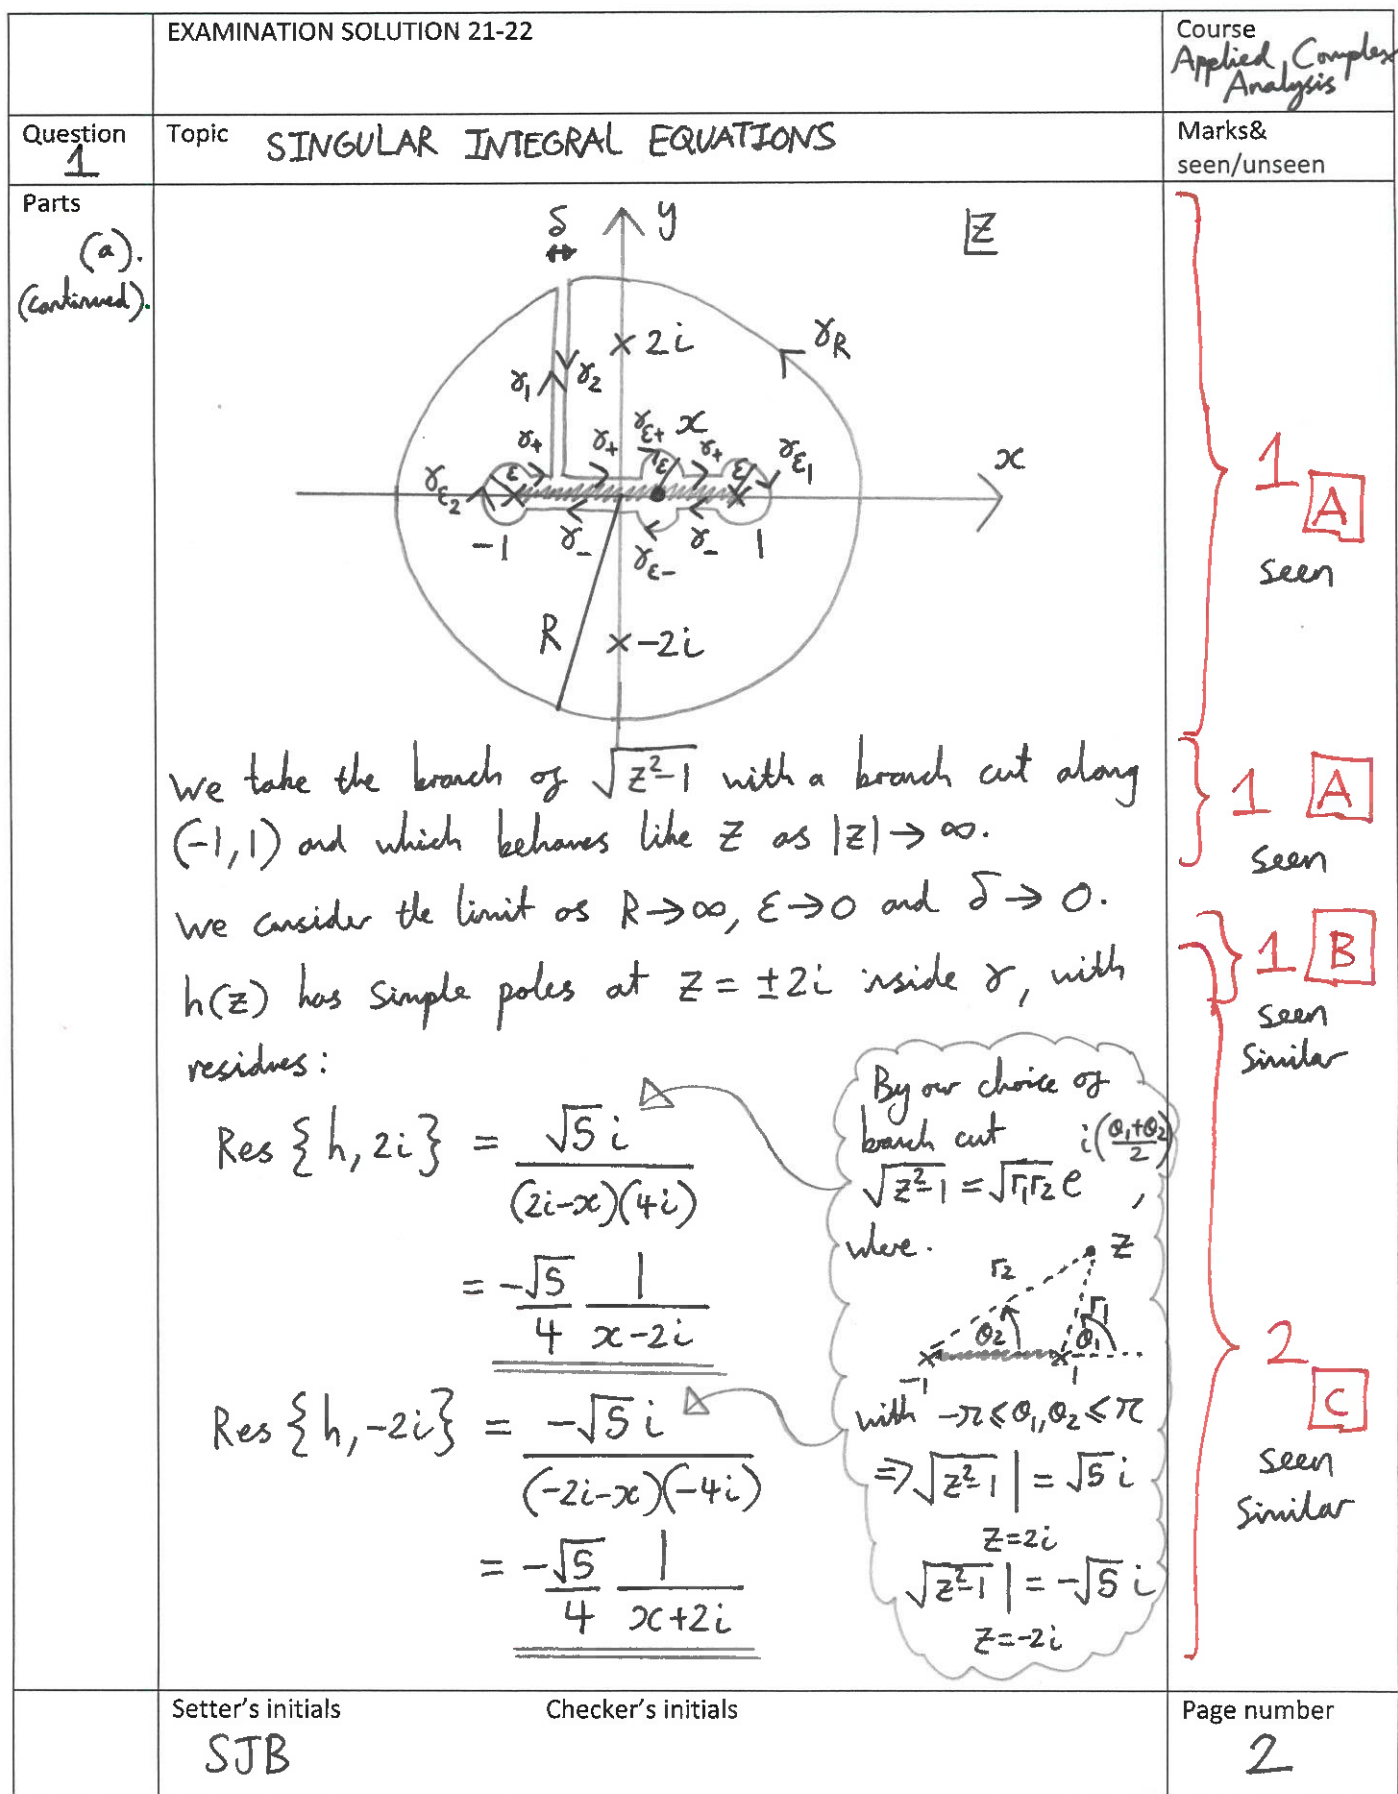 EXAMINATION SOLUTION 21-22
Course
Applied Complex
Analysis
Question
1
Topic SINGULAR INTEGRAL EQUATIONS
Marks&
seen/unseen
Parts
(a).
(continued).
δ
y
z
2i
γ_R
γ_1
γ_2
γ_+
γ_+
γ_ε+
x
γ_+
γ_ε1
x
ε
ε
ε
γ_ε2
-1
γ_-
γ_ε-
γ_-
1
R
-2i
1 A
seen
We take the branch of √(z²-1) with a branch cut along
(-1,1) and which behaves like z as |z| → ∞.
1 A
seen
We consider the limit as R→∞, ε→0 and δ→0.
h(z) has simple poles at z = ±2i inside γ, with
residues:
1 B
seen
similar
Res {h, 2i} = √5 i / ((2i-x)(4i))
= -√5/4 1/(x-2i)
Res {h, -2i} = -√5 i / ((-2i-x)(-4i))
= -√5/4 1/(x+2i)
By our choice of
branch cut
√(z²-1) = √(r₁r₂) e^{i((θ₁+θ₂)/2)},
where.
z
r₂
r₁
θ₂
θ₁
-1
1
with -π ≤ θ₁,θ₂ ≤ π
⇒ √(z²-1) | = √5 i
z=2i
√(z²-1) | = -√5 i
z=-2i
2
C
seen
similar
Setter's initials
SJB
Checker's initials
Page number
2